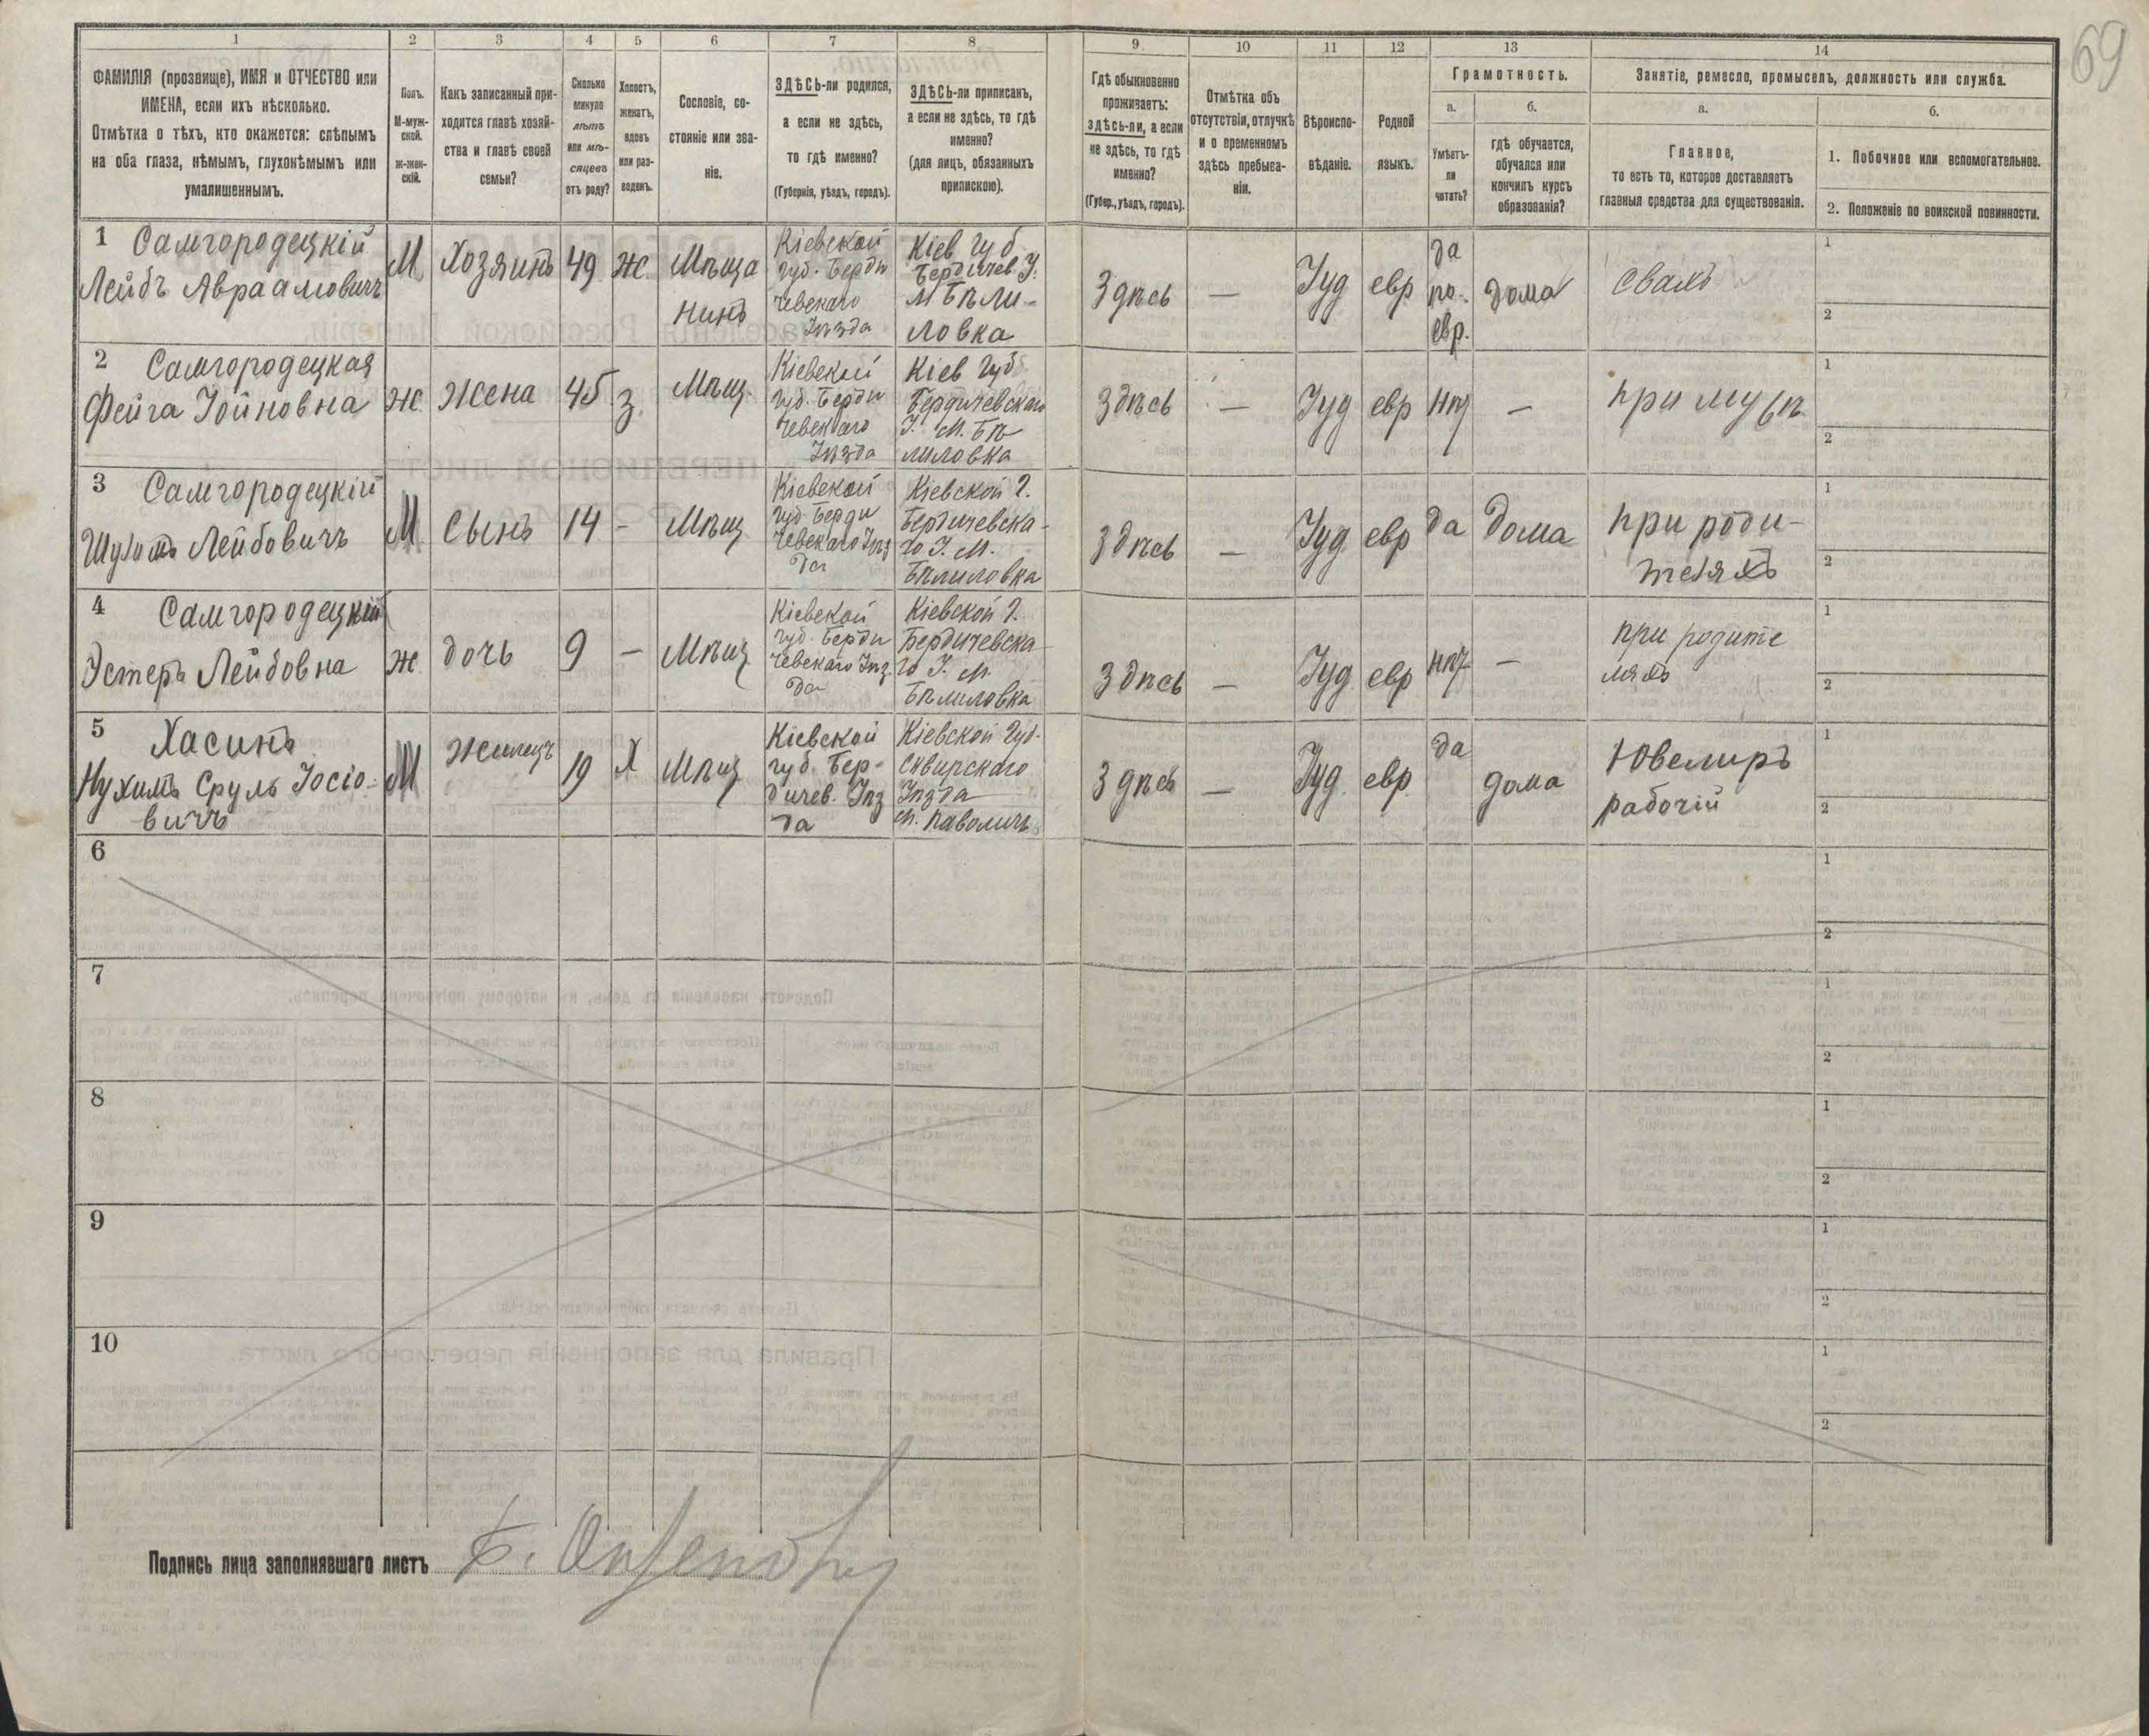 69
1
ФАМИЛІЯ (прозвище), ИМЯ и ОТЧЕСТВО или
ИМЕНА, если ихъ нѣсколько.
Отмѣтка о тѣхъ, кто окажется: слѣпымъ
на оба глаза, нѣмымъ, глухонѣмымъ или
умалишеннымъ.
2
Полъ.
М-муж-
ской.
ж-жен-
скій.
3
Какъ записанный при-
ходится главѣ хозяй-
ства и главѣ своей
семьи?
4
Сколько
минуло
лѣтъ
или мѣ-
сяцевъ
отъ роду?
5
Холостъ,
женатъ,
вдовъ
или раз-
веденъ.
6
Сословіе, со-
стояніе или зва-
ніе.
7
ЗДѢСЬ-ли родился,
а если не здѣсь,
то гдѣ именно?
(Губернія, уѣздъ, городъ).
8
ЗДѢСЬ-ли приписанъ,
а если не здѣсь, то гдѣ
именно?
(для лицъ, обязанныхъ
припискою).
9
Гдѣ обыкновенно
проживаетъ:
здѣсь-ли, а если
не здѣсь, то гдѣ
именно?
(Губер., уѣздъ, городъ).
10
Отмѣтка объ
отсутствіи, отлучкѣ
и о временномъ
здѣсь пребыва-
ніи.
11
Вѣроиспо-
вѣданіе.
12
Родной
языкъ.
13
Грамотность.
а.
Умѣетъ-
ли
читать?
б.
гдѣ обучается,
обучался или
кончилъ курсъ
образованія?
14
Занятіе, ремесло, промыселъ, должность или служба.
а.
Главное,
то есть то, которое доставляетъ
главныя средства для существованія.
б.
1. Побочное или вспомогательное.
2. Положеніе по воинской повинности.
1
Самгородецкій
Лейбъ Авраамовичъ
М
Хозяинъ
49
ж
Мѣща
нинъ
Кіевской
губ. Берди
чевскаго
Уѣзда
Кіев губ
Бердичев У.
М Бѣли-
ловка
Здѣсь
—
Іуд
евр
да
по-
евр.
дома
1
2
2
Самгородецкая
Фейга Іойновна
ж
жена
45
з.
Мѣщ.
Кіевской
губ. Берди
чевскаго
Уѣзда
Кіев губ
Бердичевскаго
У. М. Бѣ
лиловка
Здѣсь
—
Іуд
евр
нѣт
—
при мужѣ
1
2
3
Самгородецкій
Лейбовичъ
М
сынъ
14
-
Мѣщ
Кіевской
губ Берди
чевскаго Уѣз
да
Кіевской г.
Бердичевска-
го У. М.
Бѣлиловка
Здѣсь
—
Іуд
евр
да
дома
при роди-
теляхъ
1
2
4
Самгородецкій
Эстеръ Лейбовна
ж
дочь
9
—
Мѣщ
Кіевской
губ. Берди
чевскаго Уѣз.
да
Кіевской г.
Бердичевска-
го У. М.
Бѣлиловка
Здѣсь
—
Іуд
евр
нѣт
—
при родите
ляхъ
1
2
5
Хасинъ
Нухимъ Сруль Іосіо-
вичъ
М
Жилецъ
19
Х
Мѣщ
Кіевской
губ. Бер-
дичев. Уѣз
да
Кіевской губ.
Сквирскаго
Уѣзда
м. Паволичъ
Здѣсь
—
Іуд.
евр.
да
дома
Ювелиръ
рабочій
1
2
6
1
2
7
1
2
8
1
2
9
1
2
10
1
2
Подпись лица заполнявшаго листъ